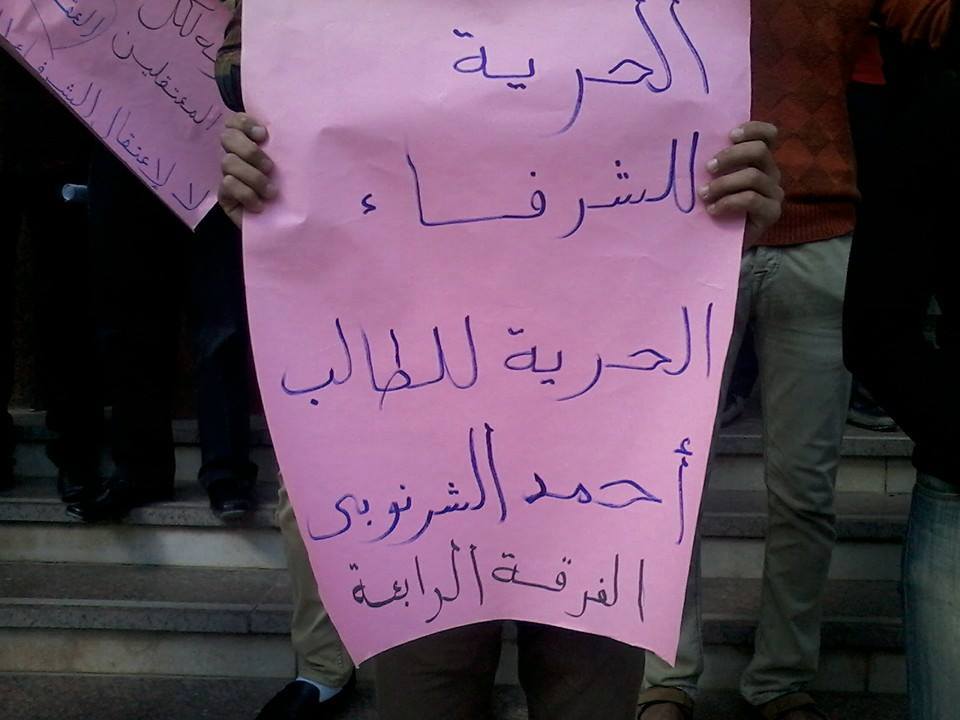 الحرية
للشرفاء
الحرية للطالب
أحمد الشرنوبى
الفرقة الرابعة
لكل
المعتقلين
لا لإعتقال الشرفاء